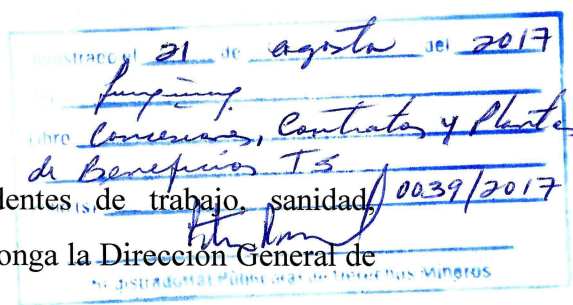 Registrado el 21 de agosto del 2017
Libro Concesiones, Contratos y Plantas
de Beneficios T5
0039/2017
dentes de trabajo, sanidad,
onga la Dirección General de
Registrador(a) Público(a) de Derechos Mineros